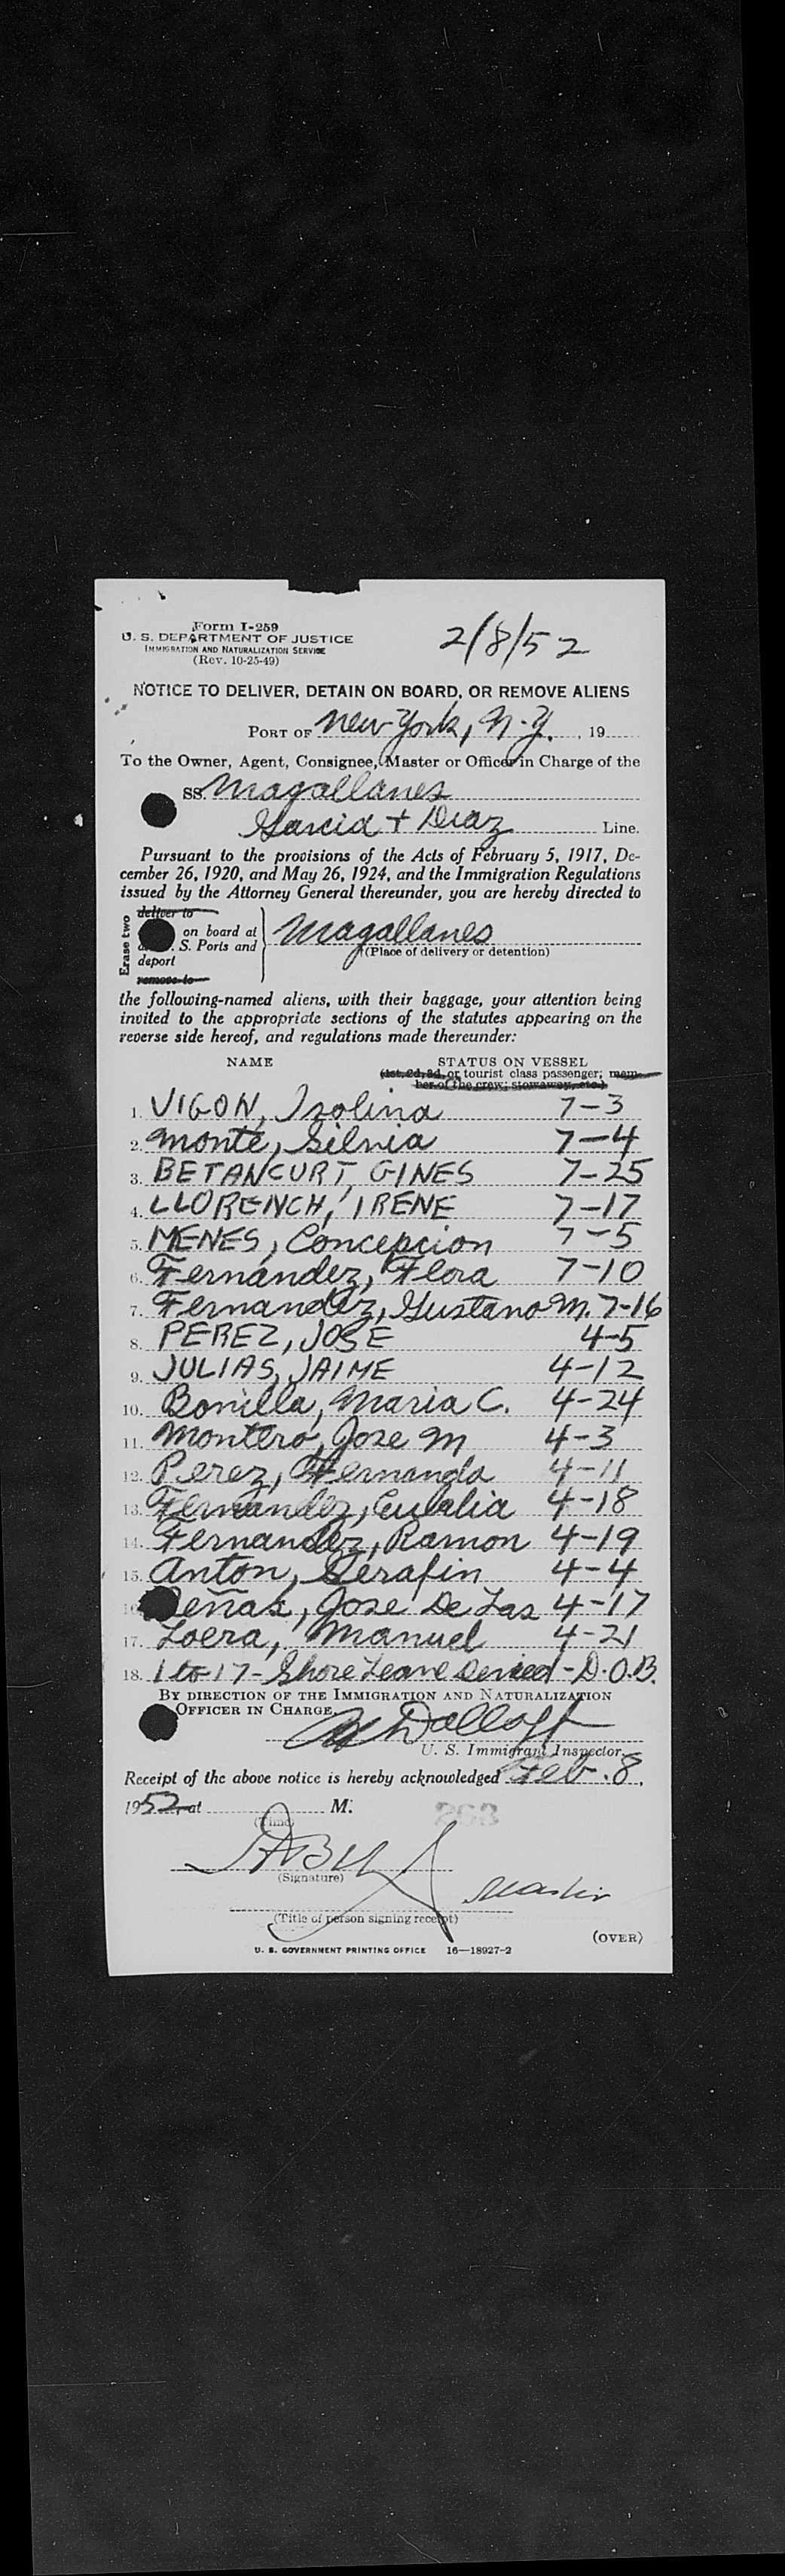 Form I-259
U. S. DEPARTMENT OF JUSTICE
IMMIGRATION AND NATURALIZATION SERVICE
(Rev. 10-25-49)
2/8/52
NOTICE TO DELIVER, DETAIN ON BOARD, OR REMOVE ALIENS
PORT OF New York, N.Y., 19
To the Owner, Agent, Consignee, Master or Officer in Charge of the
SS. Magallanes
Garcia + Diaz Line.
Pursuant to the provisions of the Acts of February 5, 1917, De-
cember 26, 1920, and May 26, 1924, and the Immigration Regulations
issued by the Attorney General thereunder, you are hereby directed to
Erase two
deliver to
on board at
S. Ports and
deport
remove to
Magallanes
(Place of delivery or detention)
the following-named aliens, with their baggage, your attention being
invited to the appropriate sections of the statutes appearing on the
reverse side hereof, and regulations made thereunder:
NAME STATUS ON VESSEL
(1st, 2d, 3d, or tourist class passenger; mem-
ber of the crew; stowaway, etc.)
1. VIGON, Isolina 7-3
2. Monte, Silvia 7-4
3. BETANCURT, GINES 7-25
4. LLORENCH, IRENE 7-17
5. MENES, Concepcion 7-5
6. Fernandez, Flora 7-10
7. Fernandez, Gustavo M. 7-16
8. PEREZ, JOSE 4-5
9. JULIAS, JAIME 4-12
10. Bonilla, Maria C. 4-24
11. Montero, Jose M 4-3
12. Perez, Fernando 4-11
13. Fernandez, Eulalia 4-18
14. Fernandez, Ramon 4-19
15. Anton, Serafin 4-4
Peñas, Jose De Las 4-17
17. Loera, Manuel 4-21
18. 1 to 17 - Shore Leave Denied - D.O.B.
BY DIRECTION OF THE IMMIGRATION AND NATURALIZATION
OFFICER IN CHARGE.
U. S. Immigrant Inspector.
Receipt of the above notice is hereby acknowledged Feb. 8,
1952, at M.
(Time)
(Signature)
Master
(Title of person signing receipt)
(OVER)
U. S. GOVERNMENT PRINTING OFFICE 16—18927-2